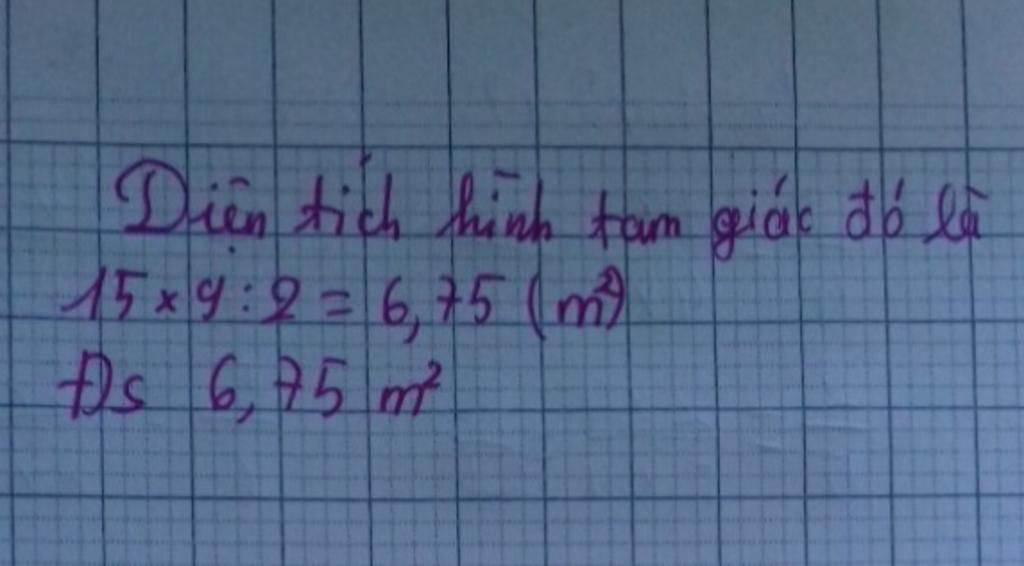 Diện tích hình tam giác đó là
15 × 9 : 2 = 6,75 (m²)
Đs 6,75 m²